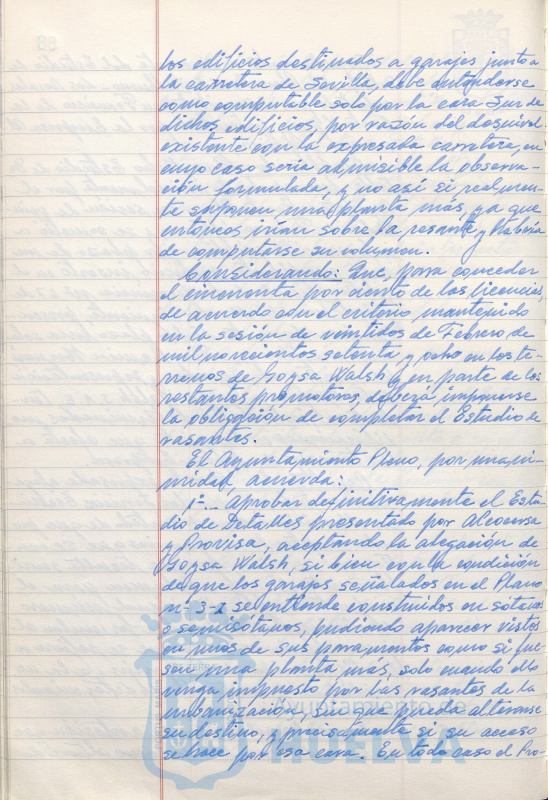 los edificios destinados a garajes junto a
la carretera de Sevilla, debe entenderse
como computable solo por la cara Sur de
dichos edificios, por razón del desnivel
existente con la expresada carretera, en
cuyo caso sería admisible la observa-
ción formulada, y no así si realmen-
te suponen una planta más, ya que
entonces irían sobre la rasante, y habría
de computarse su volumen.
Considerando: Que, para conceder
el cincuenta por ciento de las licencias,
de acuerdo con el criterio mantenido
en la sesión de veintidos de Febrero de
mil novecientos setenta y ocho en los te-
rrenos de Goysa Walsh y en parte de los
restantes promotores, deberá imponerse
la obligación de completar el Estudio de
rasantes.
El Ayuntamiento Pleno, por unani-
midad, acuerda:
1º.- Aprobar definitivamente el Estu-
dio de Detalles presentado por Alcoensa
y Provisa, aceptando la alegación de
Goysa Walsh, si bien con la condición
de que los garajes señalados en el Plano
nº 3-1 se entiende construidos en sótanos
o semisótanos, pudiendo aparecer vistos
en unos de sus paramentos como si fue-
sen una planta más, solo cuando ello
venga impuesto por las rasantes de la
urbanización, sin que pueda alterarse
su destino, y precisamente si su acceso
se hace por esa cara. En todo caso el Pro-
Ayuntamiento de
HUELVA